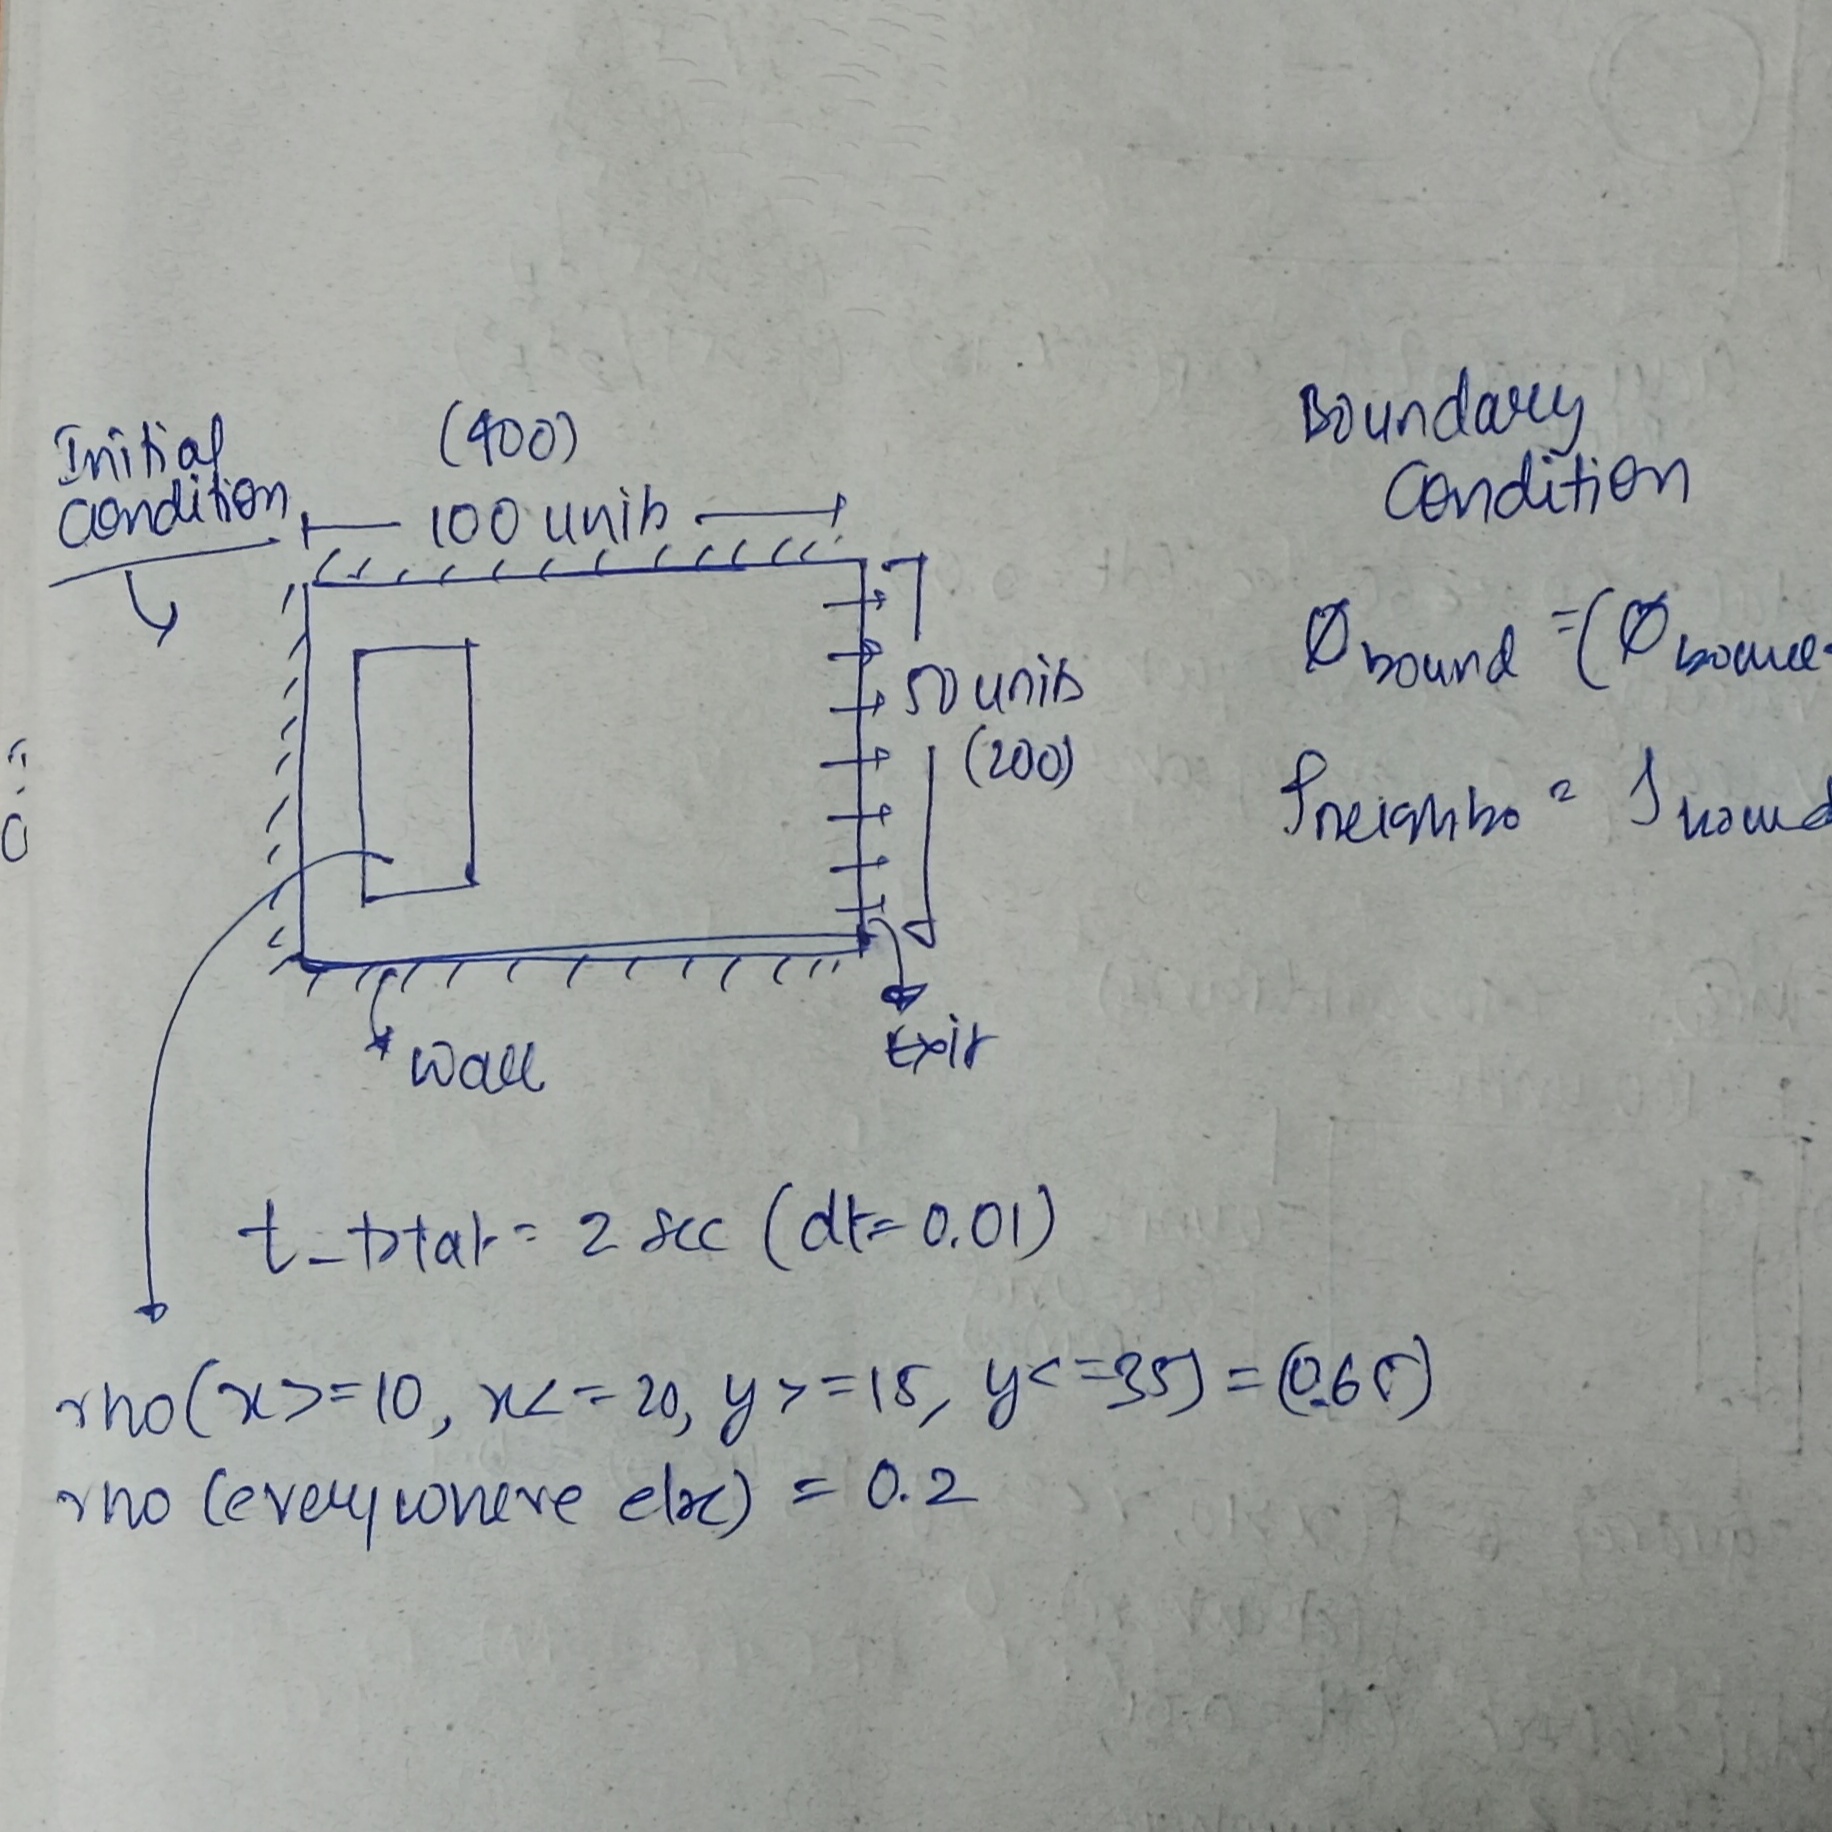 Initial
condition
(400)
100 units
50 units
(200)
Wall
Exit
Boundary
Condition
Ø bound = (Ø
t_total = 2 sec (dt = 0.01)
rho(x>=10, x<=20, y>=15, y<=35) = (0.65)
rho (everywhere else) = 0.2